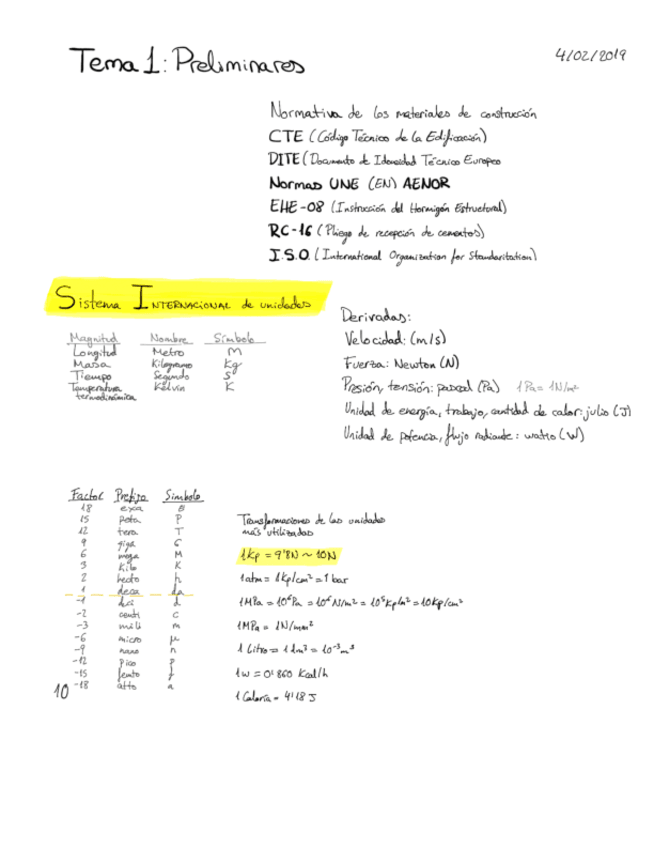 Tema 1: Preliminares
4/02/2019
Normativa de los materiales de construcción
CTE (Código Técnico de la Edificación)
DITE (Documento de Idoneidad Técnico Europeo
Normas UNE (EN) AENOR
EHE-08 (Instrucción del Hormigón Estructural)
RC-16 (Pliego de recepción de cementos)
I.S.O. (International Organization for Standaritation)
Sistema INTERNACIONAL de unidades
Magnitud Nombre Símbolo
Longitud Metro M
Masa Kilogramo Kg
Tiempo Segundo S
Temperatura termodinámica Kelvin K
Derivadas:
Velocidad: (m/s)
Fuerza: Newton (N)
Presión, tensión: pascal (Pa) 1 Pa = 1N/m²
Unidad de energía, trabajo, cantidad de calor: julio (J)
Unidad de potencia, flujo radiante: watio (W)
Factor Prefijo Símbolo
18 exa E
15 peta P
12 tera T
9 giga G
6 mega M
3 Kilo K
2 hecto h
1 deca da
-1 deci d
-2 centi c
-3 mili m
-6 micro μ
-9 nano n
-12 pico p
-15 femto f
10 -18 atto a
Transformaciones de las unidades
más utilizadas
1Kp = 9'8N ~ 10N
1atm = 1Kp/cm² = 1 bar
1MPa = 10⁶Pa = 10⁶ N/m² = 10⁵Kp/m² = 10Kp/cm²
1MPa = 1N/mm²
1 Litro = 1dm³ = 10⁻³m³
1w = 0'860 Kcal/h
1 Caloría = 4'18 J